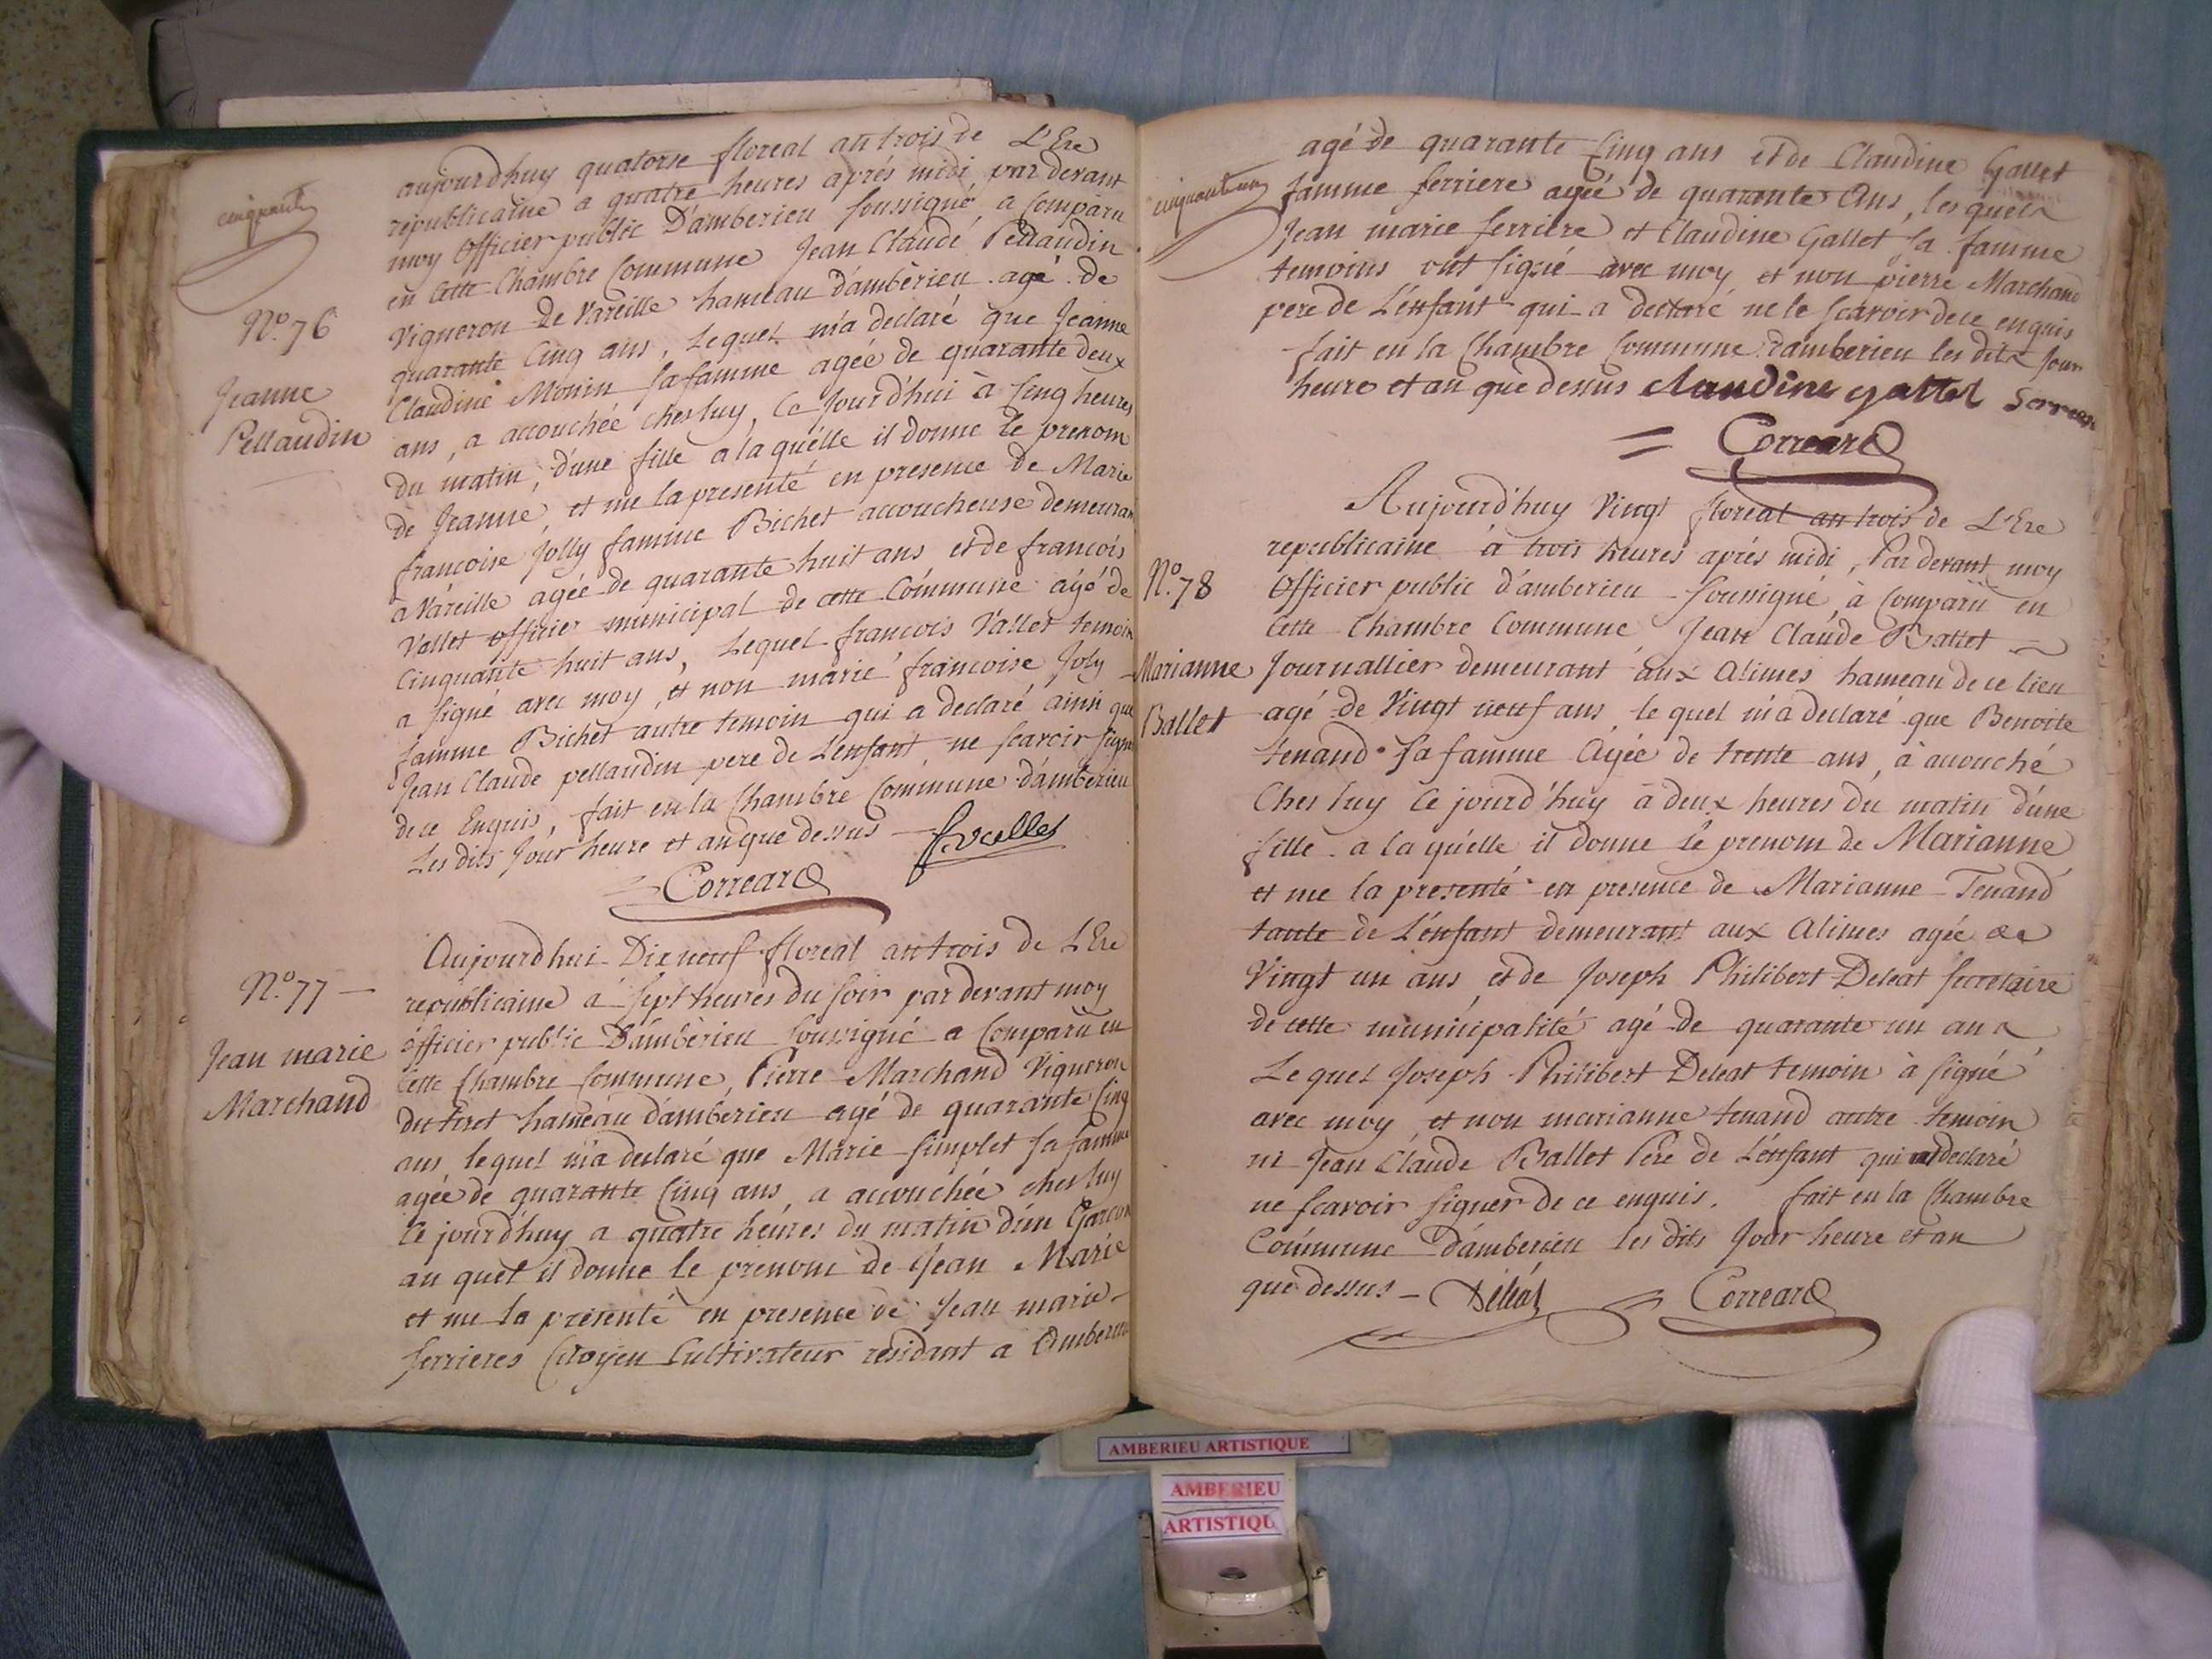 cinquante
aujourd'huy quatorse floreal an trois de L'Ere
republicaine a quatre heures aprés midi par devant
moy Officier public D'amberieu soussigné a Comparu
en cette Chambre Commune Jean Claude Pellaudin
Vigneron de Vareille hameau d'amberieu agé de
quarante Cinq ans, Lequel m'a declaré que Jeanne
Claudine Monin sa famme agée de quarante deux
ans, a accouchée ches luy, Ce jourd'hui à Cinq heures
du matin, d'une fille a la quélle il donne le prenom
de Jeanne, et me la presenté en presence de Marie
francoise Jolly famme Bichet accoucheuse demeuran
a Vareille agée de quarante huit ans et de francois
Vallet officier municipal de cette Commune agé de
Cinquante huit ans, Lequel francois Vallet temoin
a signé avec moy, et non marie francoise Joly
famme Bichet autre temoin qui a declaré ainsi que
Jean Claude pellaudin pere de L'enfant ne scavoir signe
de ce Enquis, fait en la Chambre Commune d'amberieu
Les dits Jour heure et an que dessus - f. vallet
Correard
N.o 76
Jeanne
Pellaudin
Aujourd'hui Dix neuf floreal an trois de L'Ere
republicaine a sept heures du soir par devant moy
officier public D'amberieu soussigné a Comparu en
Cette Chambre Commune, Pierre Marchand Vigneron
du tiret hameau d'amberieu agé de quarante Cinq
ans lequel m'a declaré que Marie simplet sa famme
agée de quarante Cinq ans, a accouchée ches luy
Ce jourd'huy a quatre heures du matin d'un Garcon
au quel il donne le prenom de Jean Marie
et me la presenté en presence de Jean marie
ferrieres Citoyen Cultivateur residant a Amberieu
N.o 77
Jean marie
Marchand
cinquante un
agé de quarante Cinq ans et de Claudine Gallet
famme ferriere agée de quarante Ans, les quels
Jean marie ferriere et Claudine Gallet sa famme
temoins ont signé avec moy et non pierre Marchand
pere de L'enfant qui a declaré ne le scavoir de ce enquis
fait en la Chambre Commune d'amberieu les dits Jour
heure et an que dessus claudine gallet
Correard
Aujourd'huy Vingt floreal an trois de L'Ere
republicaine à trois heures aprés midi, Par devant moy
Officier public d'amberieu soussigné, à Comparu en
Cette Chambre Commune, Jean Claude Ballet
Journallier demeurant aux Alimes hameau de ce lieu
agé de Vingt neuf ans, le quel m'a declaré que Benoite
tenand sa famme Agée de trente ans, à accouché
Ches luy Ce jourd'huy à deux heures du matin d'une
fille a la quélle il donne le prenom de Marianne
et me la presenté en presence de Marianne Tenand
tante de L'enfant demeurant aux Alimes agée de
Vingt un ans, et de Joseph Philibert Deleat secretaire
de cette municipalité agé de quarante un ans
Le quel Joseph Philibert Deleat temoin à signé
avec moy, et non marianne tenand autre temoin
ni Jean Claude Ballet Pere de L'enfant qui declaré
ne scavoir signer de ce enquis. fait en la Chambre
Commune D'amberieu les dits Jour heure et an
que dessus - Déléat Correard
N.o 78
Marianne
Ballet
AMBERIEU ARTISTIQUE
AMBERIEU
ARTISTIQU